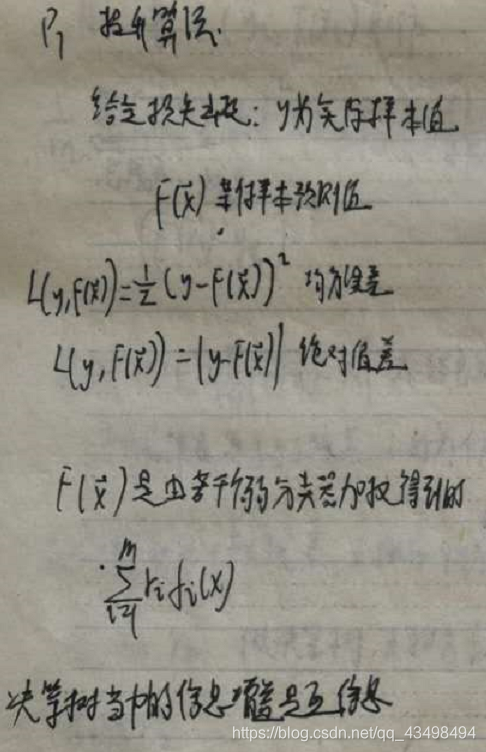 P₁ 提升算法.
给定损失函数: y为实际样本值
F(x⃗) 单个样本预测值
L(y,F(x⃗))=½(y-F(x⃗))² 均方误差
L(y,F(x⃗))=|y-F(x⃗)| 绝对值差
F(x⃗)是由若干个弱分类器加权得到的
∑ᵢ₌₁ᵐ rᵢfᵢ(x)
决策树当中的信息增益是互信息
https://blog.csdn.net/qq_43498494